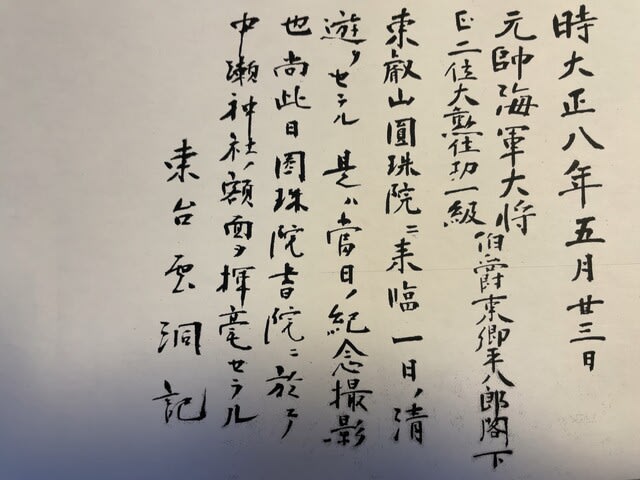 時大正八年五月廿三日
元帥海軍大将
正二位大勲位功一級
伯爵東郷平八郎閣下
東叡山圓珠院ニ来臨一日ノ清
遊ヲセラル 是ハ當日ノ紀念撮影
也尚此日圓珠院書院ニ於テ
中瀬神社ノ額面ヲ揮毫セラル
東台雲洞記